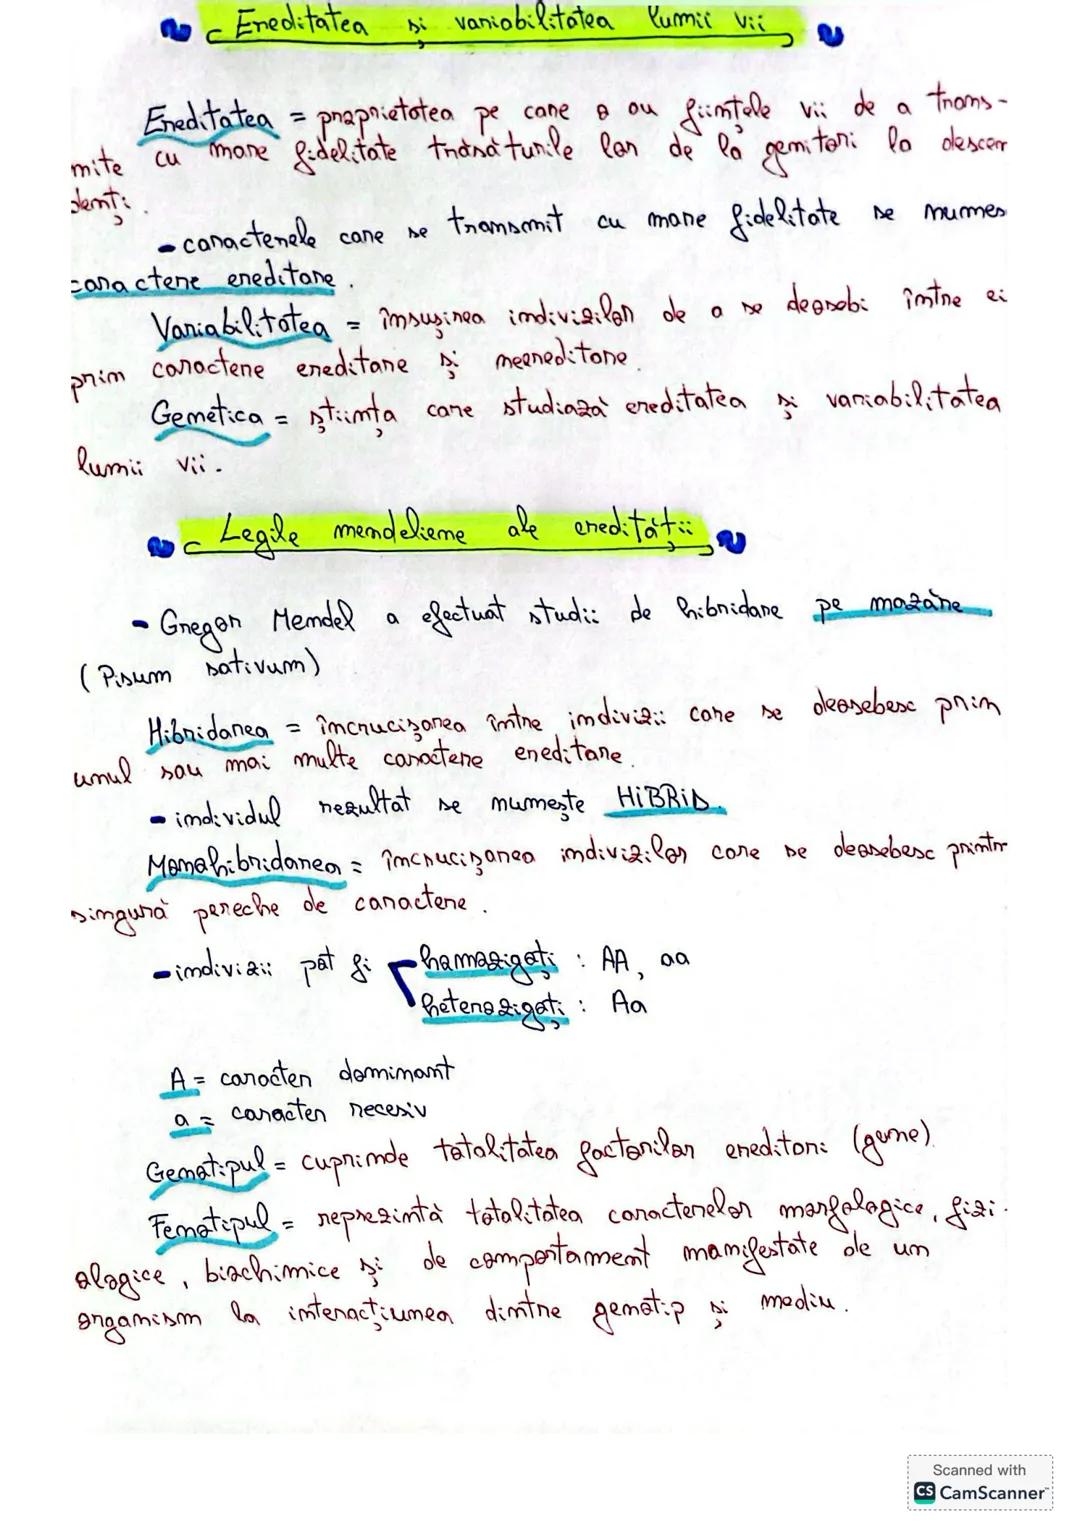 Ereditatea și variabilitatea lumii vii
Ereditatea = proprietatea pe care o au ființele vii de a trans-
mite cu mare fidelitate trăsăturile lor de la genitori la descen
denți.
- caracterele care se transmit cu mare fidelitate se numes
caractere ereditare.
Variabilitatea = însușirea indivizilor de a se deosebi între ei
prin caractere ereditare și neereditare.
Genetica = știința care studiază ereditatea și variabilitatea
lumii vii.
Legile mendeliene ale eredității
- Gregor Mendel a efectuat studii de hibridare pe mazăre
(Pisum sativum)
Hibridarea = încrucișarea între indivizii care se deosebesc prin
unul sau mai multe caractere ereditare.
- individul rezultat se numește HiBRiD.
Monohibridarea = încrucișarea indivizilor care se deosebesc printr
singură pereche de caractere.
- indivizii pot fi homozigoți : AA, aa
heterozigoți : Aa
A = caracter dominant
a = caracter recesiv
Genotipul = cuprinde totalitatea factorilor ereditari (gene).
Fenotipul = reprezintă totalitatea caracterelor morfologice, fizi-
ologice, biochimice și de comportament manifestate de un
organism la interacțiunea dintre genotip și mediu.
Scanned with
CS CamScanner